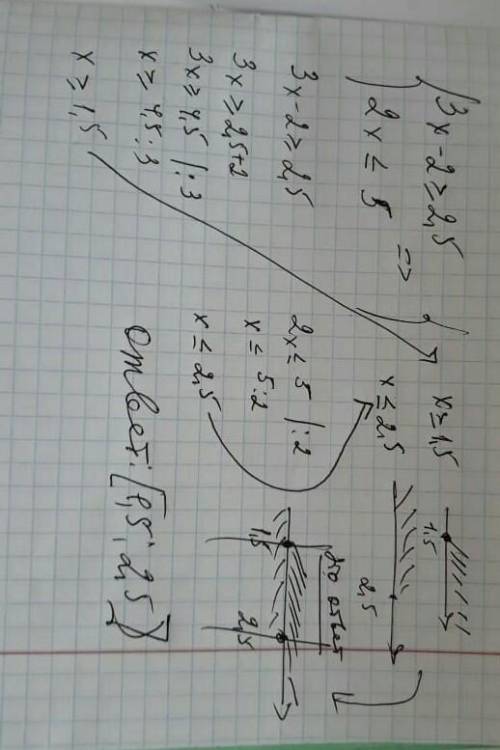 { 3x-2≥2,5
2x≤5 => { x≥1,5
x≤2,5
3x-2≥2,5
3x≥2,5+2
3x≥4,5 |:3
x≥4,5:3
x≥1,5
2x≤5 |:2
x≤5:2
x≤2,5
1,5
2,5
это ответ
1,5 2,5
ответ: [1,5; 2,5]